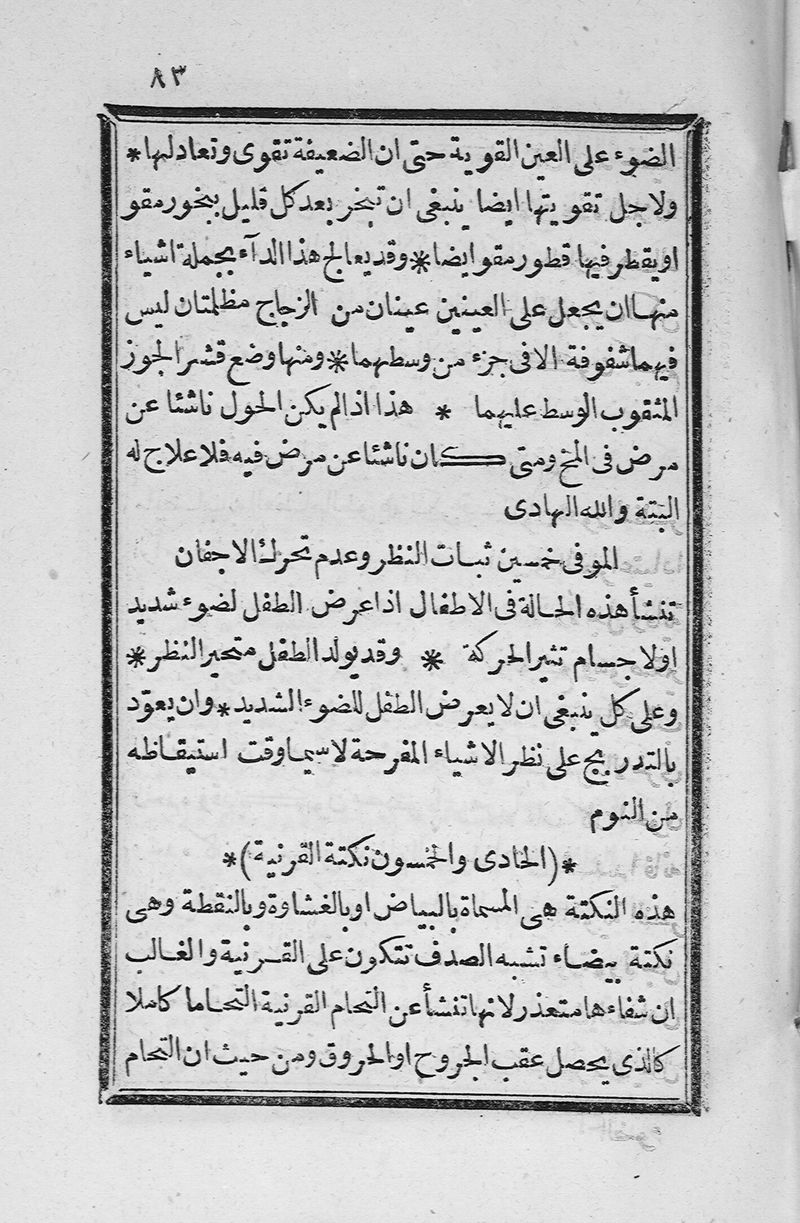 ٨٣
الضوء على العين القوية حتى ان الضعيفة تقوى وتعادلها *
ولاجل تقويتها ايضا ينبغى ان تبخر بعد كل قليل ببخور مقو
او يقطر فيها قطور مقو ايضا * وقد يعالج هذا الدآء بجملة اشياء
منها ان يجعل على العينين عينان من الزجاج مظلمتان ليس
فيهما شفوفة الا فى جزء من وسطهما * ومنها وضع قشر الجوز
المثقوب الوسط عليهما * هذا اذا لم يكن الحول ناشئا عن
مرض فى المخ ومتى كان ناشئا عن مرض فيه فلا علاج له
البتة والله الهادى
الموفى خمسين ثبات النظر وعدم تحرك الاجفان
تنشأ هذه الحالة فى الاطفال اذا عرض الطفل لضوء شديد
او لاجسام تثير الحركة * وقد يولد الطفل متحير النظر *
وعلى كل ينبغى ان لا يعرض الطفل للضوء الشديد * وان يعوّد
بالتدريج على نظر الاشياء المفرحة لا سيما وقت استيقاظه
من النوم
* (الحادى والخمسون نكتة القرنية) *
هذه النكتة هى المسماة بالبياض او بالغشاوة وبالنقطة وهى
نكتة بيضاء تشبه الصدف تتكون على القرنية والغالب
ان شفاءها متعذر لانها تنشأ عن التحام القرنية التحاما كاملا
كالذى يحصل عقب الجروح او الحروق ومن حيث ان التحام